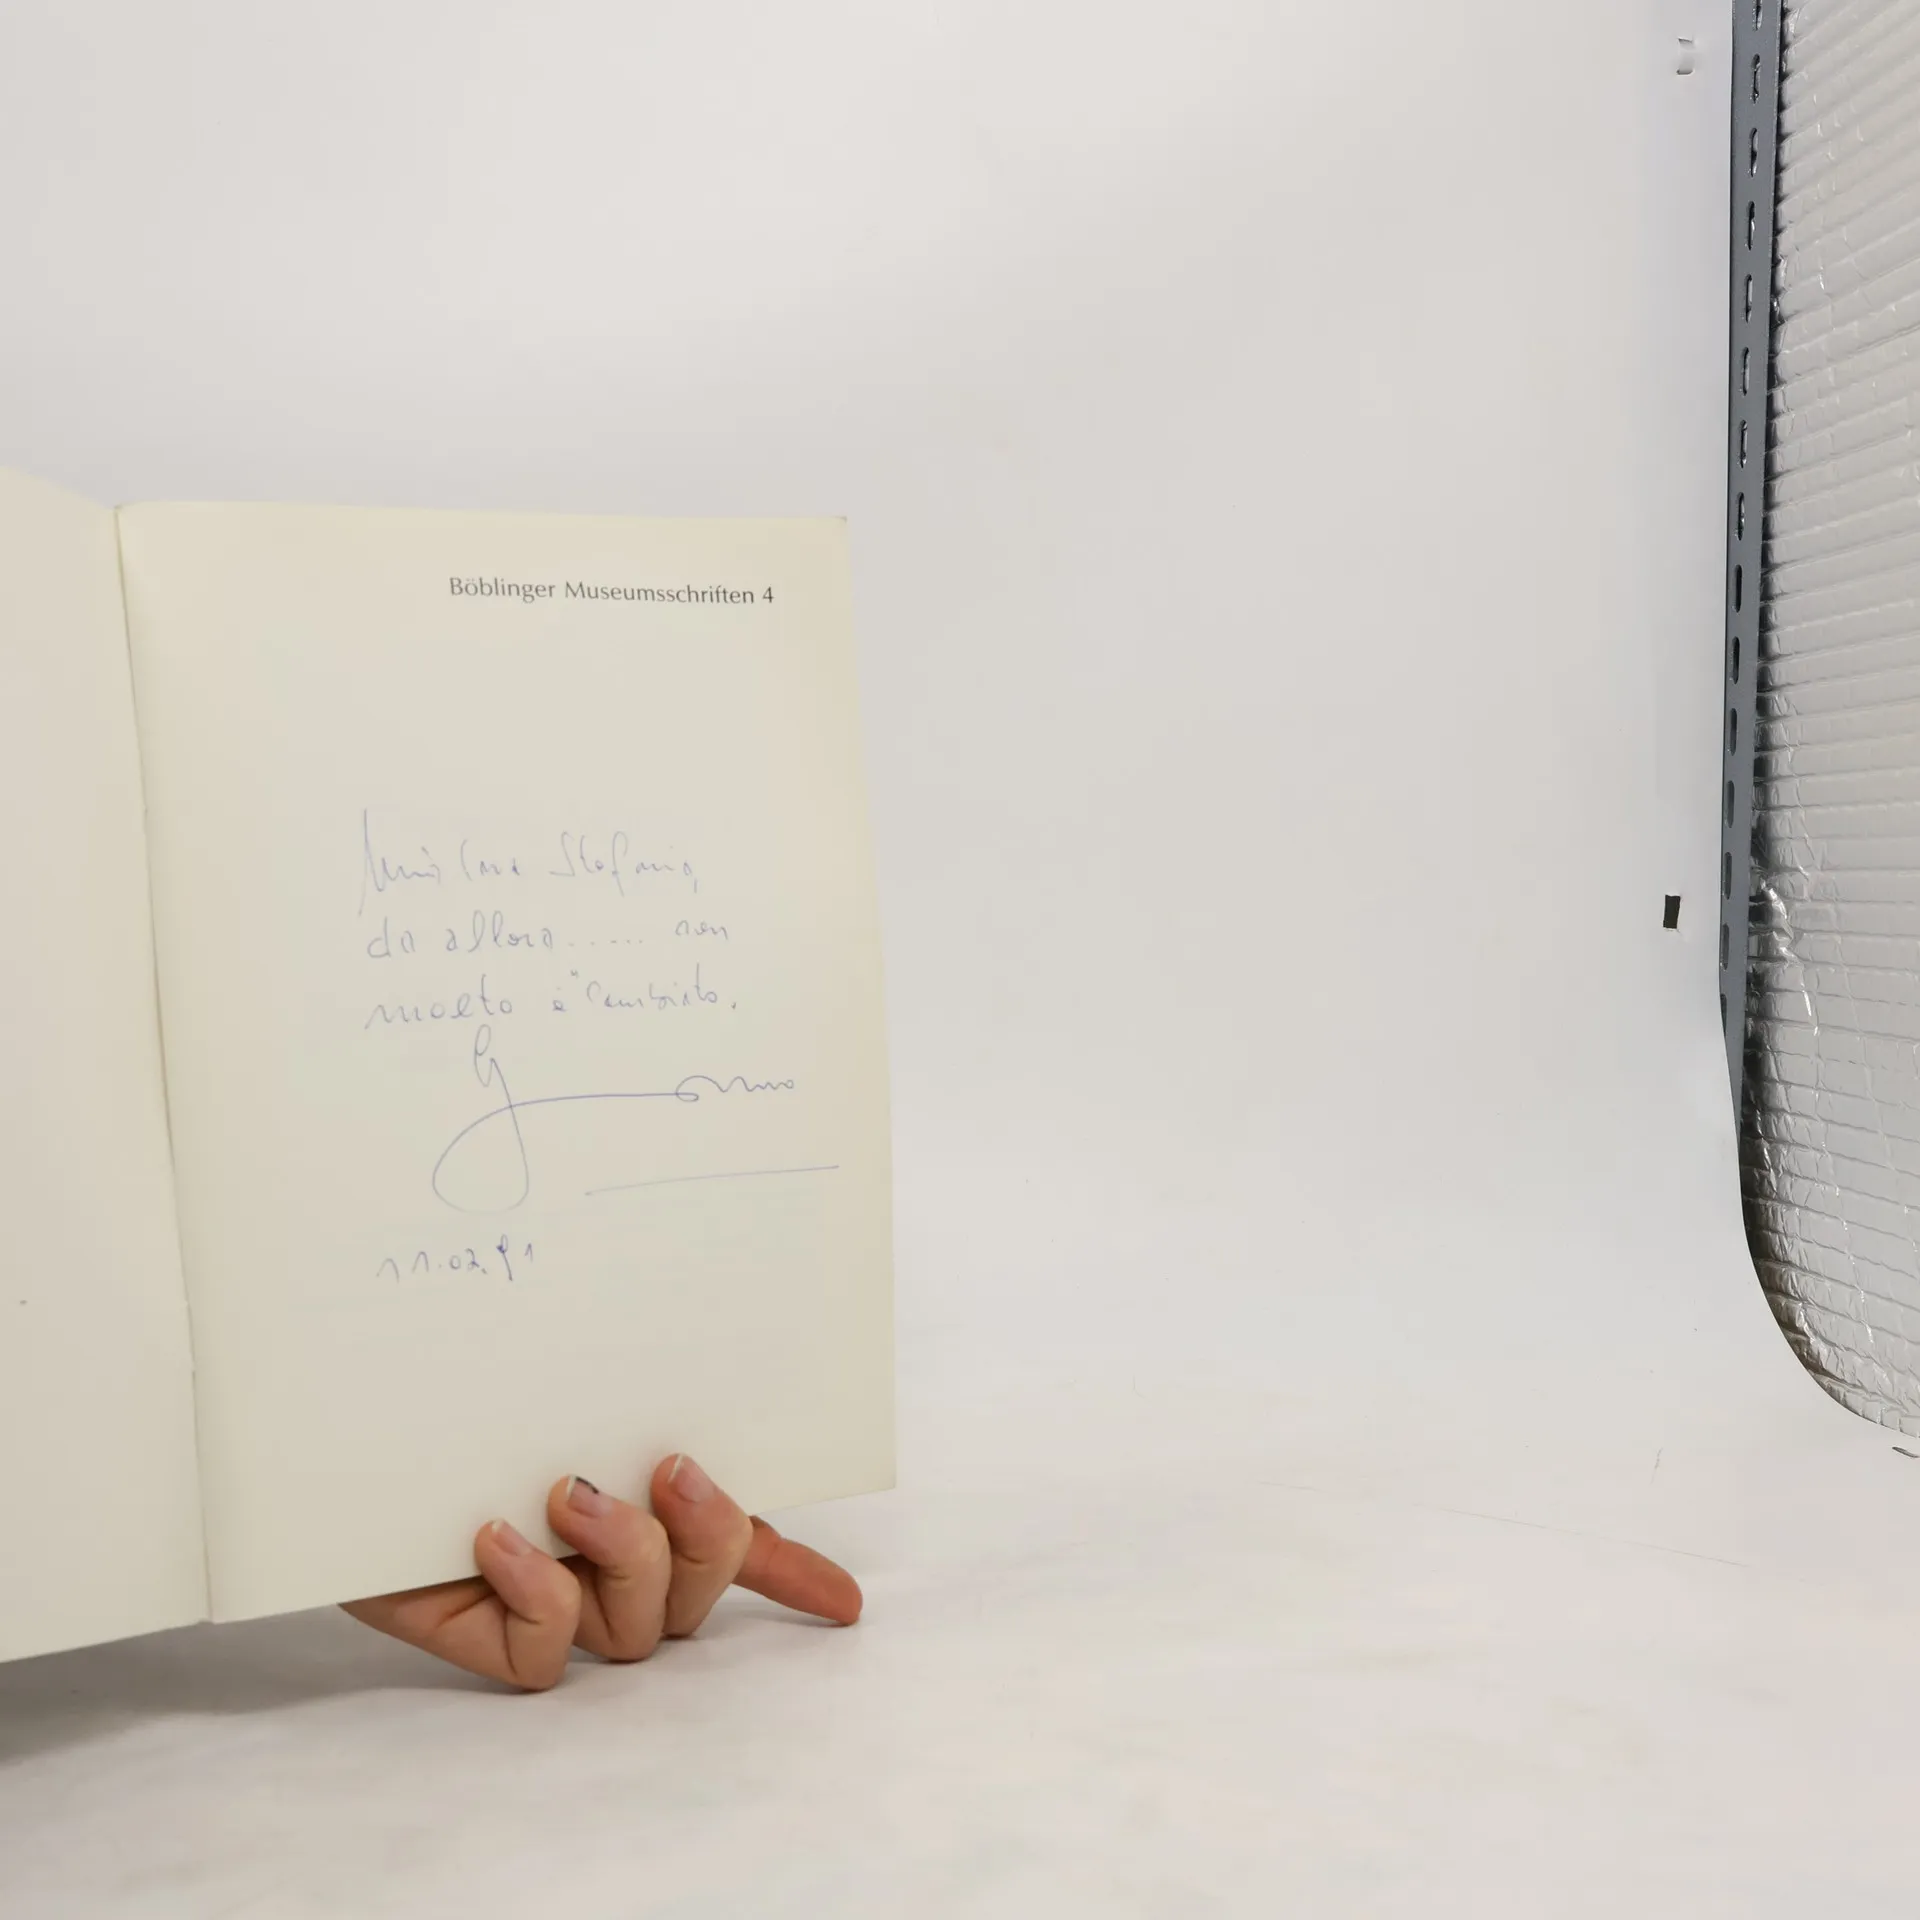 Böblinger Museumsschriften 4
Mia Cara Stefania,
da allora...... non
molto è "Cambiato.
11.02.91